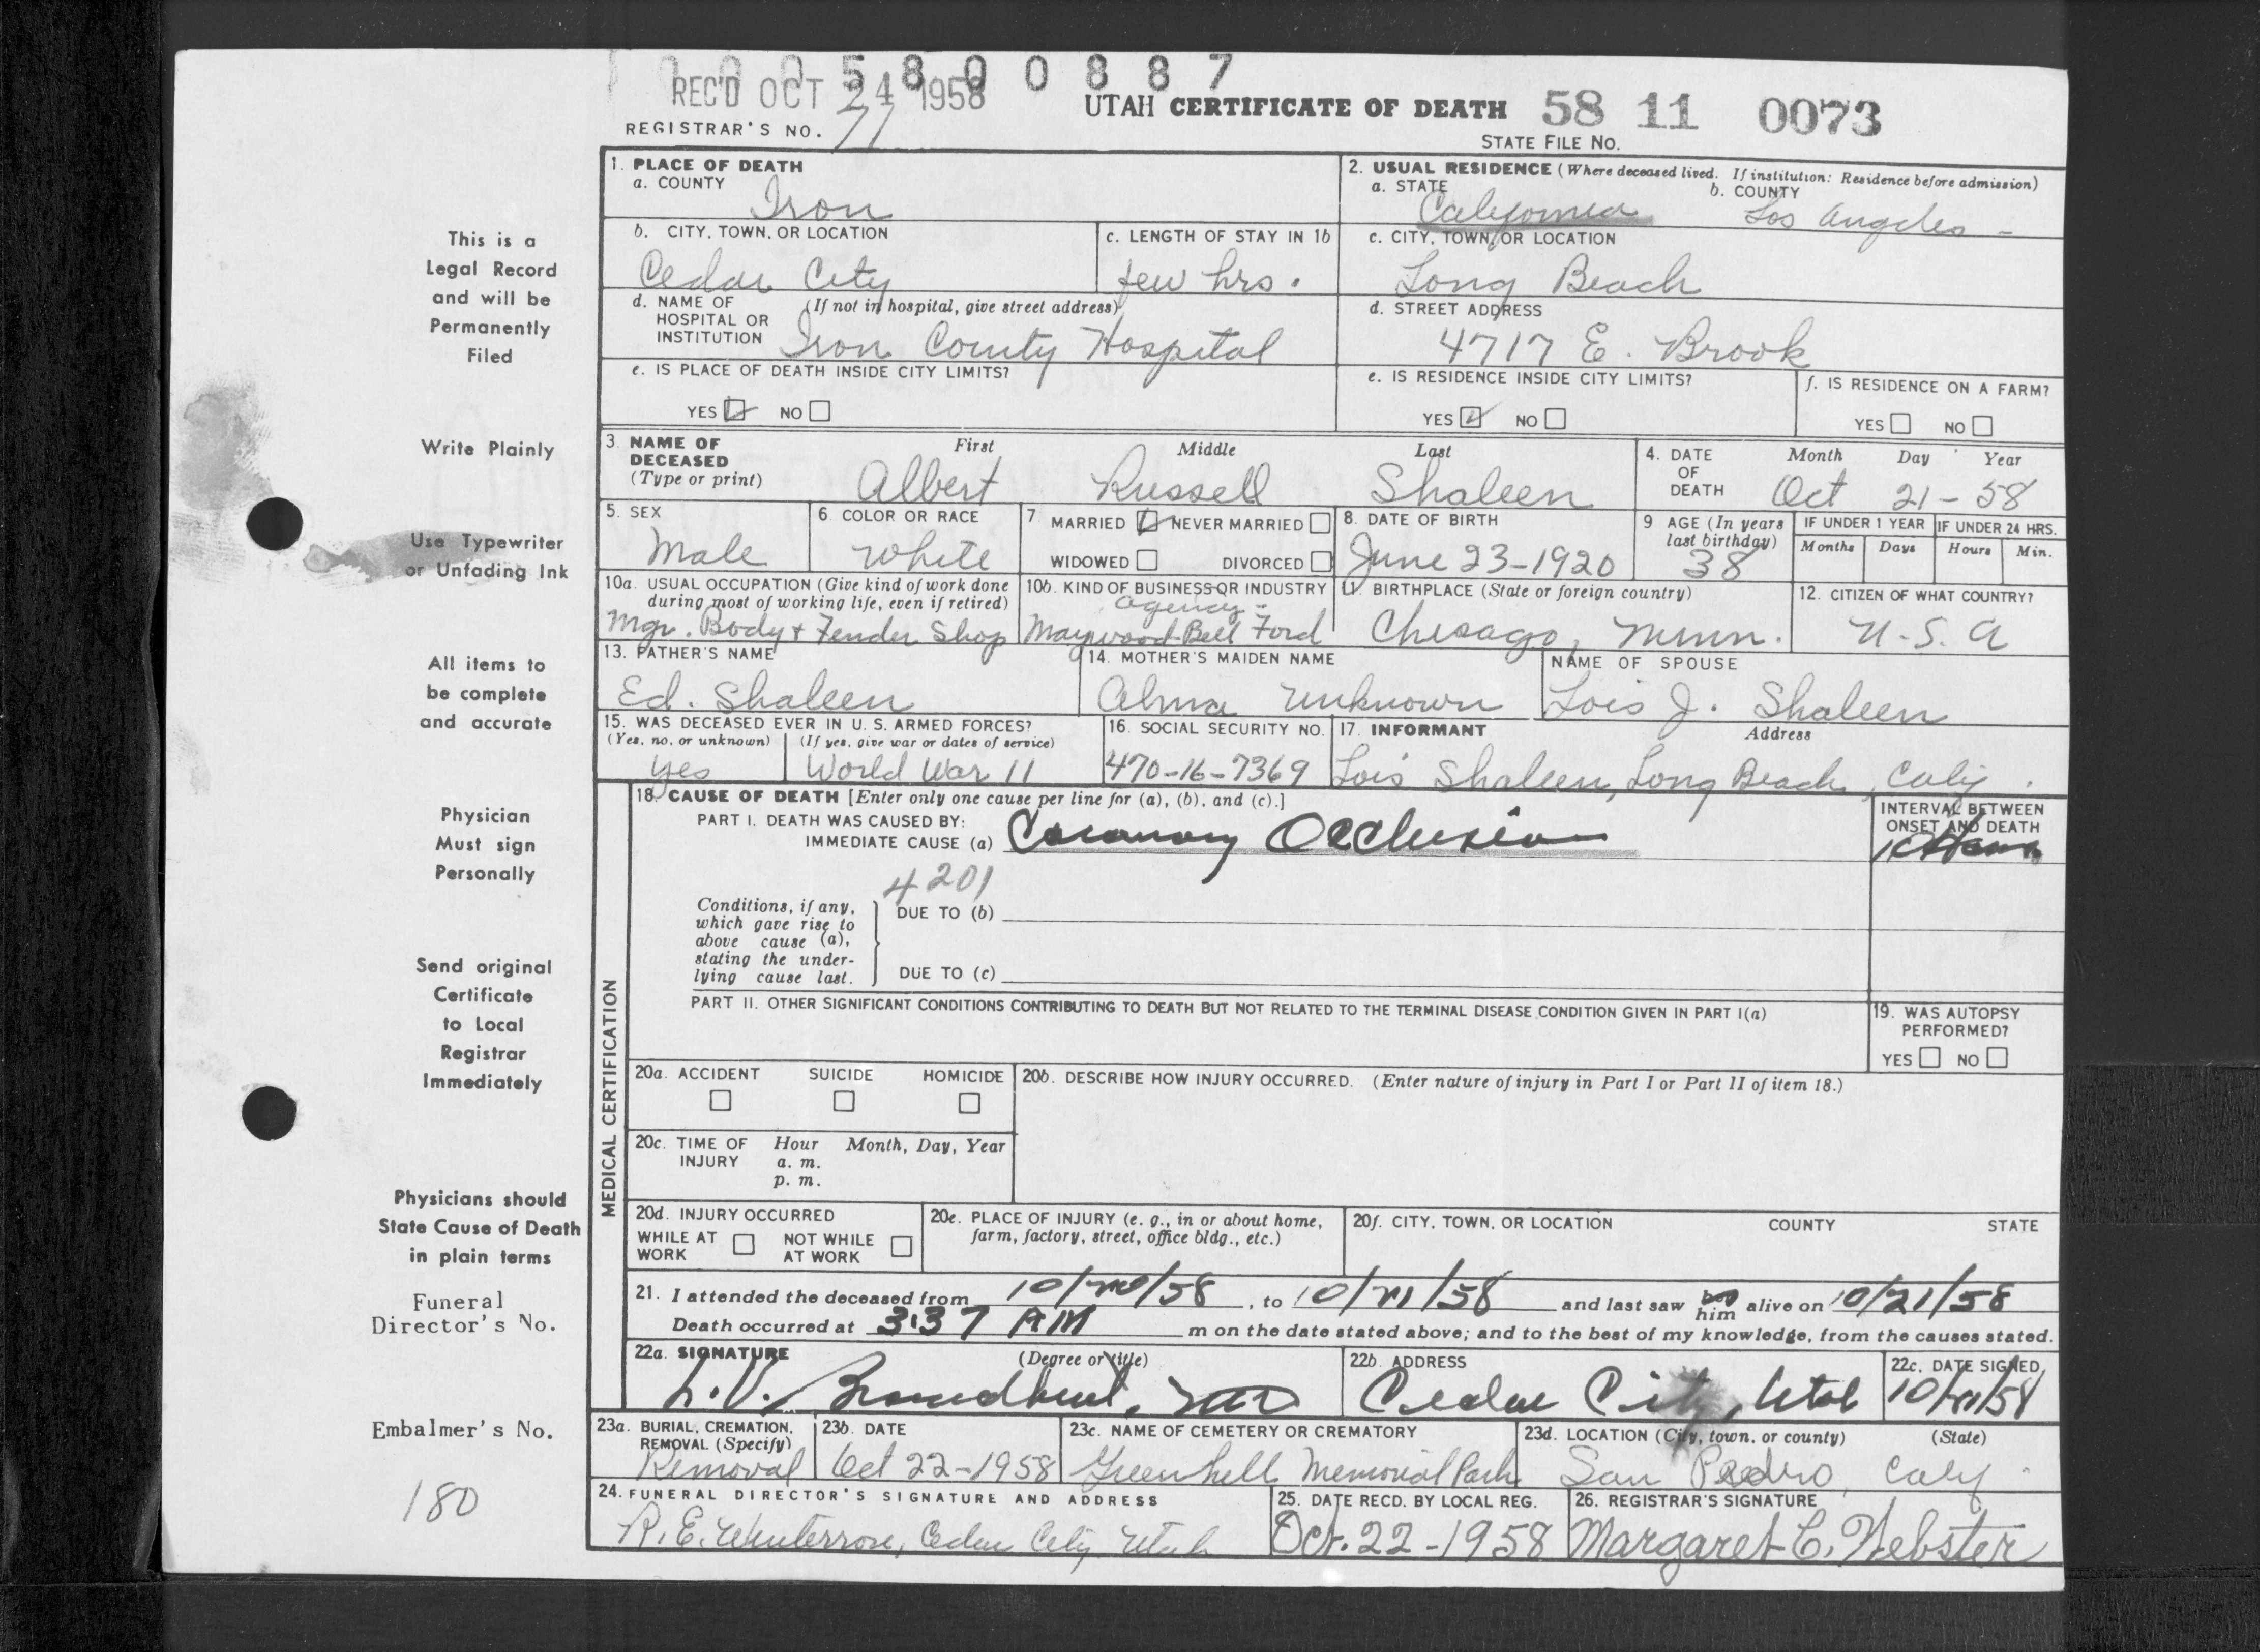 0 0 0 5 8 0 0 8 8 7
REC'D OCT 24 1958
UTAH CERTIFICATE OF DEATH 58 11 0073
REGISTRAR'S NO. 71
STATE FILE No.
1. PLACE OF DEATH
a. COUNTY Iron
2. USUAL RESIDENCE (Where deceased lived. If institution: Residence before admission)
a. STATE California b. COUNTY Los Angeles -
b. CITY, TOWN, OR LOCATION Cedar City
c. LENGTH OF STAY IN 1b few hrs.
c. CITY, TOWN, OR LOCATION Long Beach
d. NAME OF HOSPITAL OR INSTITUTION (If not in hospital, give street address) Iron County Hospital
d. STREET ADDRESS 4717 E. Brook
e. IS PLACE OF DEATH INSIDE CITY LIMITS?
YES NO
e. IS RESIDENCE INSIDE CITY LIMITS?
YES NO
f. IS RESIDENCE ON A FARM?
YES NO
3. NAME OF DECEASED (Type or print)
First Middle Last
Albert Russell Shaleen
4. DATE OF DEATH Month Day Year
Oct 21-58
5. SEX Male
6. COLOR OR RACE White
7. MARRIED NEVER MARRIED
WIDOWED DIVORCED
8. DATE OF BIRTH June 23-1920
9 AGE (In years last birthday) 38
IF UNDER 1 YEAR Months Days
IF UNDER 24 HRS. Hours Min.
10a. USUAL OCCUPATION (Give kind of work done during most of working life, even if retired)
Mgr. Body + Fender Shop
10b. KIND OF BUSINESS OR INDUSTRY
agency -
Maywood-Bell Ford
11. BIRTHPLACE (State or foreign country) Chisago, Minn.
12. CITIZEN OF WHAT COUNTRY? U.S.A
13. FATHER'S NAME Ed. Shaleen
14. MOTHER'S MAIDEN NAME Alma Unknown
NAME OF SPOUSE Lois J. Shaleen
15. WAS DECEASED EVER IN U. S. ARMED FORCES?
(Yes, no, or unknown) (If yes, give war or dates of service)
yes World War 11
16. SOCIAL SECURITY NO. 470-16-7369
17. INFORMANT Address
Lois Shaleen, Long Beach, Calif.
MEDICAL CERTIFICATION
18. CAUSE OF DEATH [Enter only one cause per line for (a), (b), and (c).]
PART I. DEATH WAS CAUSED BY:
IMMEDIATE CAUSE (a) Coronary Occlusion
INTERVAL BETWEEN ONSET AND DEATH
4201
Conditions, if any, which gave rise to above cause (a), stating the underlying cause last.
DUE TO (b)
DUE TO (c)
PART II. OTHER SIGNIFICANT CONDITIONS CONTRIBUTING TO DEATH BUT NOT RELATED TO THE TERMINAL DISEASE CONDITION GIVEN IN PART I(a)
19. WAS AUTOPSY PERFORMED?
YES NO
20a. ACCIDENT SUICIDE HOMICIDE
20b. DESCRIBE HOW INJURY OCCURRED. (Enter nature of injury in Part I or Part II of item 18.)
20c. TIME OF INJURY Hour Month, Day, Year
a. m.
p. m.
20d. INJURY OCCURRED
WHILE AT WORK NOT WHILE AT WORK
20e. PLACE OF INJURY (e. g., in or about home, farm, factory, street, office bldg., etc.)
20f. CITY, TOWN, OR LOCATION COUNTY STATE
21. I attended the deceased from 10/20/58, to 10/21/58 and last saw her him alive on 10/21/58
Death occurred at 3:37 AM m on the date stated above; and to the best of my knowledge, from the causes stated.
22a. SIGNATURE (Degree or title)
L.V. Broadbent, MD
22b. ADDRESS Cedar City, Utah
22c. DATE SIGNED 10/21/58
23a. BURIAL, CREMATION, REMOVAL (Specify) Removal
23b. DATE Oct 22-1958
23c. NAME OF CEMETERY OR CREMATORY Green hill Memorial Park
23d. LOCATION (City, town, or county) (State)
San Pedro, Calif.
24. FUNERAL DIRECTOR'S SIGNATURE AND ADDRESS
R.E. Winterrose, Cedar City Utah
25. DATE RECD. BY LOCAL REG. Oct. 22-1958
26. REGISTRAR'S SIGNATURE Margaret C. Webster
This is a
Legal Record
and will be
Permanently
Filed
Write Plainly
Use Typewriter
or Unfading Ink
All items to
be complete
and accurate
Physician
Must sign
Personally
Send original
Certificate
to Local
Registrar
Immediately
Physicians should
State Cause of Death
in plain terms
Funeral
Director's No.
Embalmer's No.
180